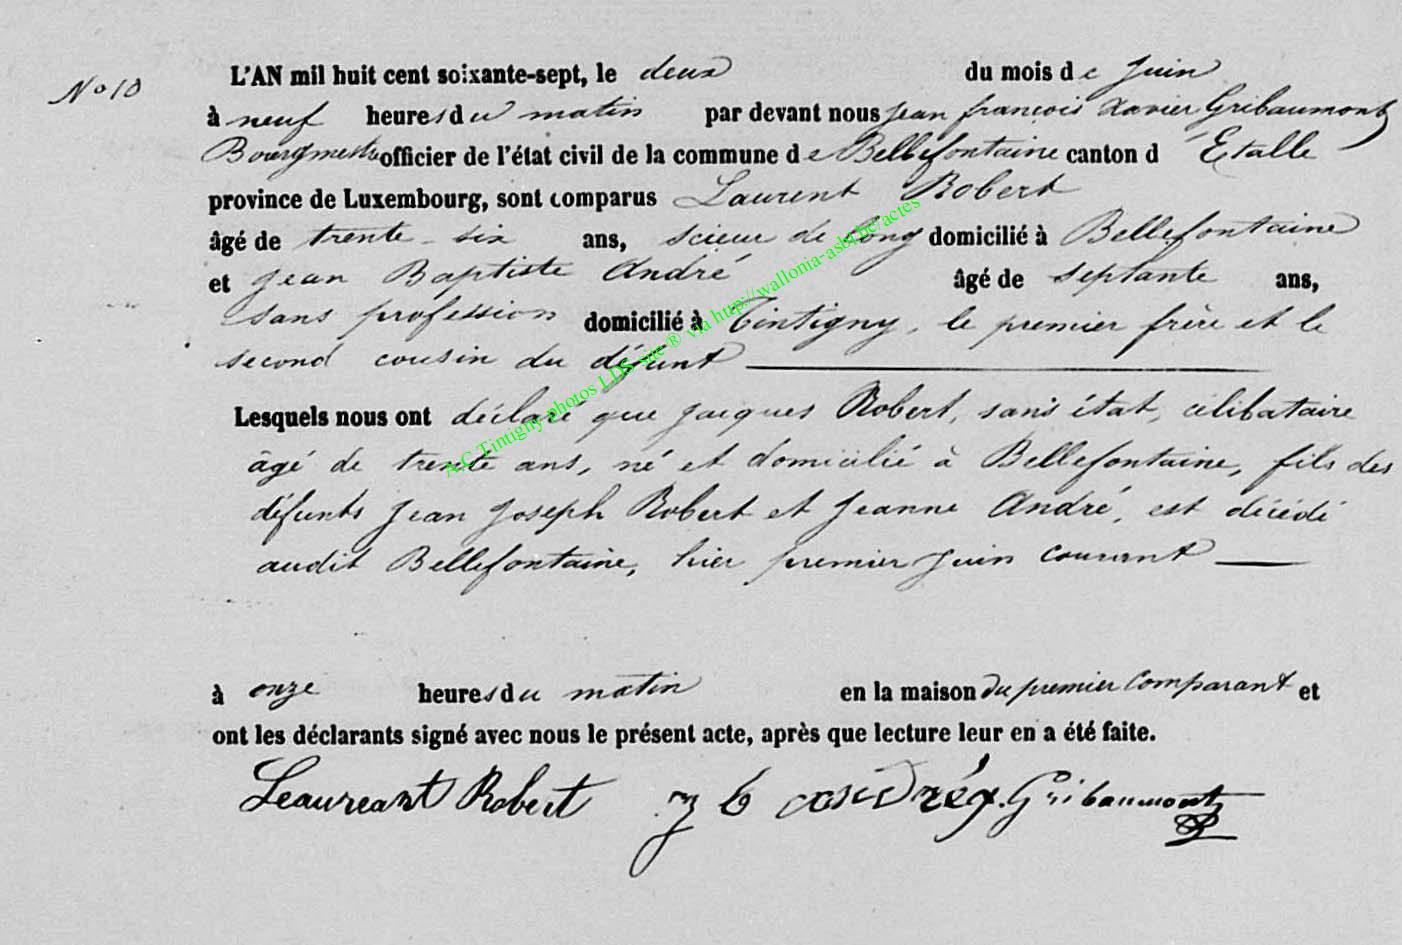 No 10
L'AN mil huit cent soixante-sept, le deux du mois de Juin
à neuf heures du matin par devant nous Jean françois Xavier Gribaumont
Bourgmestre officier de l'état civil de la commune de Bellefontaine canton d Etalle
province de Luxembourg, sont comparus Laurent Robert
âgé de trente-six ans, scieur de long domicilié à Bellefontaine
et Jean Baptiste André âgé de septante ans,
sans profession domicilié à Tintigny, le premier frère et le
second cousin du défunt
Lesquels nous ont déclaré que Jacques Robert, sans état, célibataire
âgé de trente ans, né et domicilié à Bellefontaine, fils des
défunts Jean Joseph Robert et Jeanne André, est décédé
audit Bellefontaine, hier premier Juin courant
à onze heures du matin en la maison du premier comparant et
ont les déclarants signé avec nous le présent acte, après que lecture leur en a été faite.
Leaureant Robert J b andréx. Gribaumont
A.C Tintigny photos LDS site ® via http://wallonia-asbl.be/actes